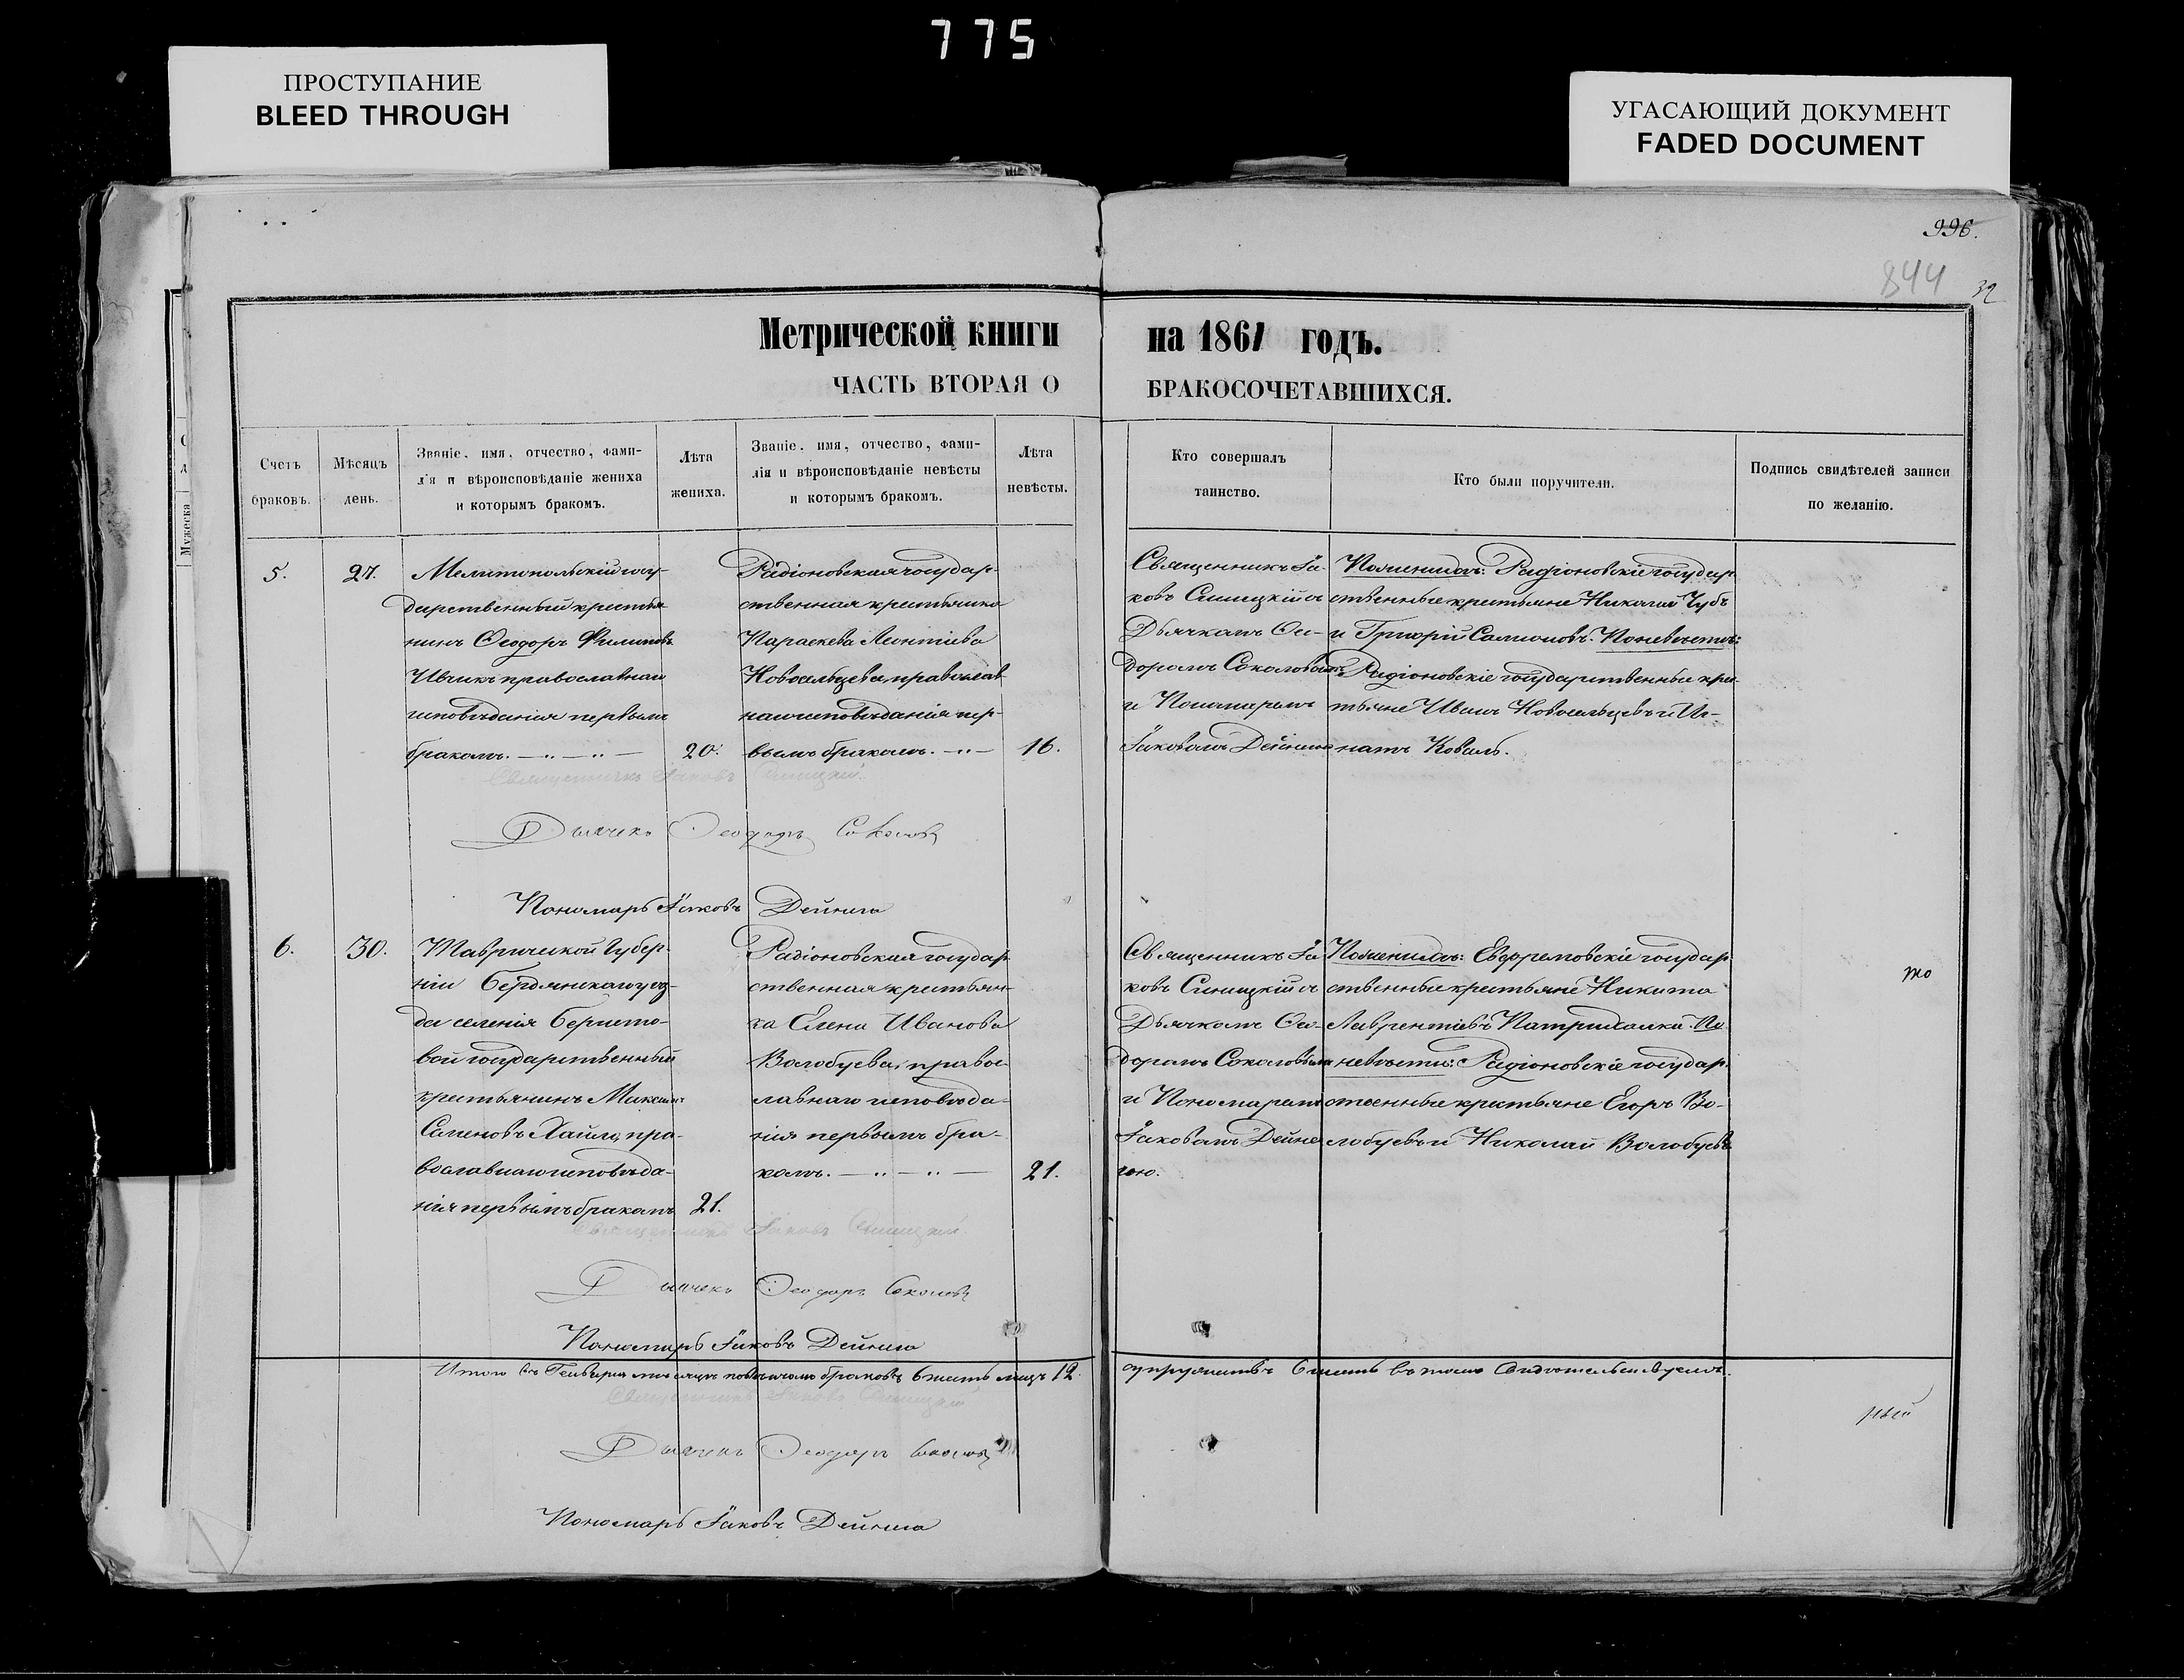 775
ПРОСТУПАНИЕ
BLEED THROUGH
УГАСАЮЩИЙ ДОКУМЕНТ
FADED DOCUMENT
996.
844
32
Метрической книги на 1861 годъ.
ЧАСТЬ ВТОРАЯ О БРАКОСОЧЕТАВШИХСЯ.
Счетъ
браковъ.
Мѣсяцъ
день.
Званіе, имя, отчество, фами-
лія и вѣроисповѣданіе жениха
и которымъ бракомъ.
Лѣта
жениха.
Званіе, имя, отчество, фами-
лія и вѣроисповѣданіе невѣсты
и которымъ бракомъ.
Лѣта
невѣсты.
Кто совершалъ
таинство.
Кто были поручители.
Подпись свидѣтелей записи
по желанію.
Мужеска
5.
27.
Мелитопольскій госу-
дарственный крестья
нинъ Ѳеодоръ Филиповъ
Ивчикъ православнаго
исповѣданія первымъ
бракомъ.
20.
Радіоновская государ-
ственная крестьянка
Параскева Леонтіева
Новосельцева, православ
наго исповѣданія пер-
вымъ бракомъ.
16.
Священникъ Іа-
ковъ Синицкій съ
Дьячкомъ Ѳео-
доромъ Соколовымъ
и Пономаремъ
Іаковомъ Дейнегою
По женихѣ: Радіоновскіе государ-
ственные крестьяне Николай Чубъ
и Григорій Самойловъ. По невѣстѣ:
Радіоновскіе государственные кре-
стьяне Иванъ Новосельцевъ и Иг-
натъ Коваль.
Священникъ Іаковъ Синицкій
Дьячекъ Ѳеодоръ Соколовъ
Пономарь Іаковъ Дейнега
6.
30.
Таврической Губер-
ніи Бердянскаго уѣз-
да селенія Беристо-
вой государственный
крестьянинъ Максимъ
Семеновъ Хайло, пра-
вославнаго исповѣда-
нія первымъ бракомъ
21.
Радіоновская государ-
ственная крестьян-
ка Елена Иванова
Волобуева, правос-
лавнаго исповѣда-
нія первымъ бра-
комъ.
21.
Священникъ Іа-
ковъ Синицкій съ
Дьячкомъ Ѳео-
доромъ Соколовымъ
и Пономаремъ
Іаковомъ Дейне-
гою.
По женихѣ: Ефремовскіе государ-
ственные крестьяне Никита
Лаврентіевъ Патрихалка. По
невѣстѣ: Радіоновскіе государ-
ственные крестьяне Егоръ Во-
лобуевъ и Николай Волобуевъ
то
Священникъ Іаковъ Синицкій
Дьячекъ Ѳеодоръ Соколовъ
Пономарь Іаковъ Дейнега
Итого въ Генварѣ мѣсяцѣ повѣнчано браковъ 6 шесть лицъ 12. супружествъ 6 шесть въ томъ свидѣтельствуемъ.
Священникъ Іаковъ Синицкій
Дьячекъ Ѳеодоръ Соколовъ
Пономарь Іаковъ Дейнега